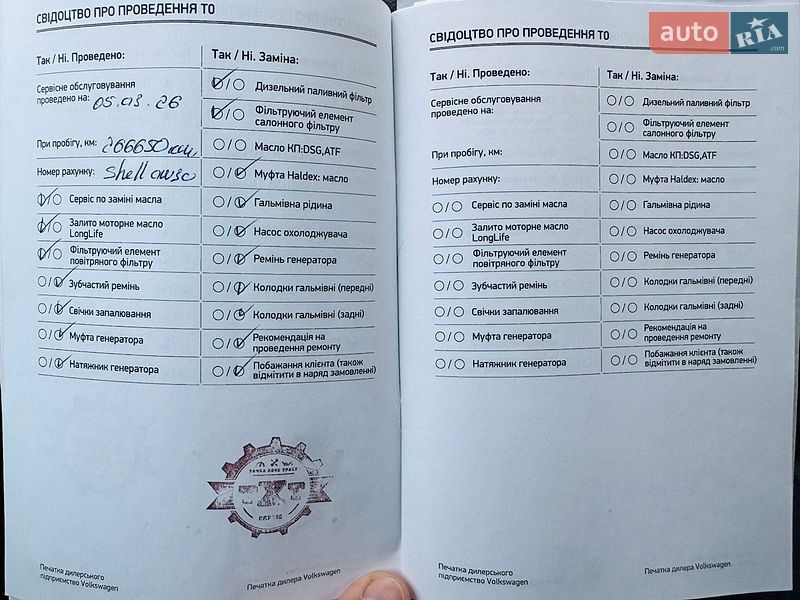 СВІДОЦТВО ПРО ПРОВЕДЕННЯ ТО
Так / Ні. Проведено:
Сервісне обслуговування
проведено на: 05.03.26
При пробігу, км: 266650 км,
Номер рахунку: Shell
○/○ Сервіс по заміні масла
○/○ Залито моторне масло
LongLife
○/○ Фільтруючий елемент
повітряного фільтру
○/○ Зубчастий ремінь
○/○ Свічки запалювання
○/○ Муфта генератора
○/○ Натяжник генератора
Так / Ні. Заміна:
○/○ Дизельний паливний фільтр
○/○ Фільтруючий елемент
салонного фільтру
○/○ Масло КП:DSG,ATF
○/○ Муфта Haldex: масло
○/○ Гальмівна рідина
○/○ Насос охолоджувача
○/○ Ремінь генератора
○/○ Колодки гальмівні (передні)
○/○ Колодки гальмівні (задні)
○/○ Рекомендація на
проведення ремонту
○/○ Побажання клієнта (також
відмітити в наряд замовленні)
СЕРВІС
Печатка дилерського
підприємство Volkswagen
Печатка дилера Volkswagen
СВІДОЦТВО ПРО ПРОВЕДЕННЯ ТО
Так / Ні. Проведено:
Сервісне обслуговування
проведено на:
При пробігу, км:
Номер рахунку:
○/○ Сервіс по заміні масла
○/○ Залито моторне масло
LongLife
○/○ Фільтруючий елемент
повітряного фільтру
○/○ Зубчастий ремінь
○/○ Свічки запалювання
○/○ Муфта генератора
○/○ Натяжник генератора
Так / Ні. Заміна:
○/○ Дизельний паливний фільтр
○/○ Фільтруючий елемент
салонного фільтру
○/○ Масло КП:DSG,ATF
○/○ Муфта Haldex: масло
○/○ Гальмівна рідина
○/○ Насос охолоджувача
○/○ Ремінь генератора
○/○ Колодки гальмівні (передні)
○/○ Колодки гальмівні (задні)
○/○ Рекомендація на
проведення ремонту
○/○ Побажання клієнта (також
відмітити в наряд замовленні)
Печатка дилерського
підприємство Volkswagen
Печатка дилера Volkswagen
auto RIA .com